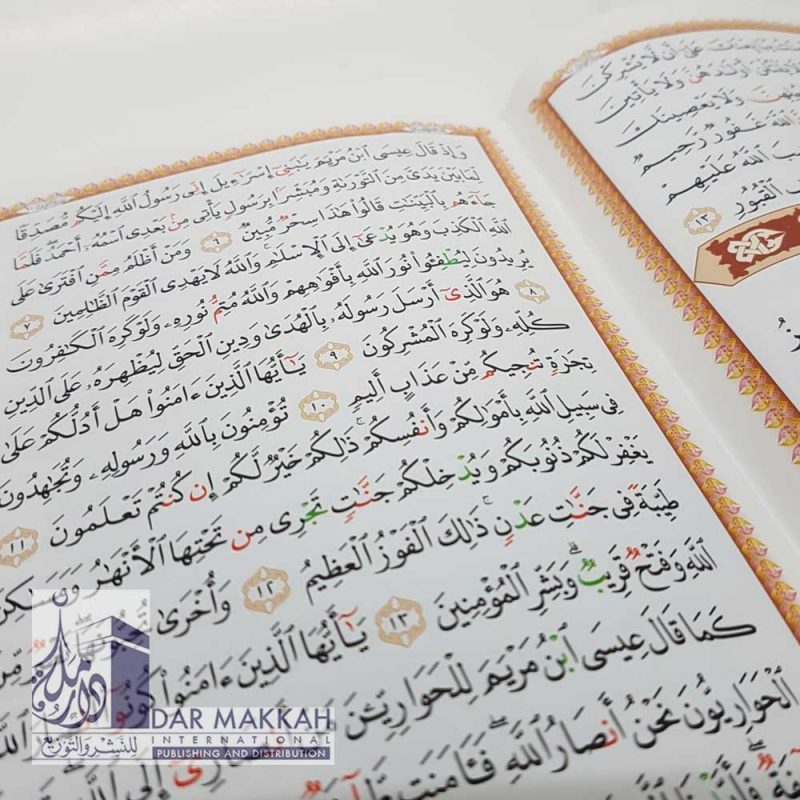 وَإِذْ قَالَ عِيسَى ٱبْنُ مَرْيَمَ يَٰبَنِىٓ إِسْرَٰٓءِيلَ إِنِّى رَسُولُ ٱللَّهِ إِلَيْكُم مُّصَدِّقًا
لِّمَا بَيْنَ يَدَىَّ مِنَ ٱلتَّوْرَىٰةِ وَمُبَشِّرًۢا بِرَسُولٍ يَأْتِى مِنۢ بَعْدِى ٱسْمُهُۥٓ أَحْمَدُ ۖ فَلَمَّا
جَآءَهُم بِٱلْبَيِّنَٰتِ قَالُوا۟ هَٰذَا سِحْرٌ مُّبِينٌ ٦ وَمَنْ أَظْلَمُ مِمَّنِ ٱفْتَرَىٰ عَلَى
ٱللَّهِ ٱلْكَذِبَ وَهُوَ يُدْعَىٰٓ إِلَى ٱلْإِسْلَٰمِ ۚ وَٱللَّهُ لَا يَهْدِى ٱلْقَوْمَ ٱلظَّٰلِمِينَ ٧
يُرِيدُونَ لِيُطْفِـُٔوا۟ نُورَ ٱللَّهِ بِأَفْوَٰهِهِمْ وَٱللَّهُ مُتِمُّ نُورِهِۦ وَلَوْ كَرِهَ ٱلْكَٰفِرُونَ
٨ هُوَ ٱلَّذِىٓ أَرْسَلَ رَسُولَهُۥ بِٱلْهُدَىٰ وَدِينِ ٱلْحَقِّ لِيُظْهِرَهُۥ عَلَى ٱلدِّينِ
كُلِّهِۦ وَلَوْ كَرِهَ ٱلْمُشْرِكُونَ ٩ يَٰٓأَيُّهَا ٱلَّذِينَ ءَامَنُوا۟ هَلْ أَدُلُّكُمْ عَلَىٰ
تِجَٰرَةٍ تُنجِيكُم مِّنْ عَذَابٍ أَلِيمٍ ١٠ تُؤْمِنُونَ بِٱللَّهِ وَرَسُولِهِۦ وَتُجَٰهِدُونَ
فِى سَبِيلِ ٱللَّهِ بِأَمْوَٰلِكُمْ وَأَنفُسِكُمْ ۚ ذَٰلِكُمْ خَيْرٌ لَّكُمْ إِن كُنتُمْ تَعْلَمُونَ ١١
يَغْفِرْ لَكُمْ ذُنُوبَكُمْ وَيُدْخِلْكُمْ جَنَّٰتٍ تَجْرِى مِن تَحْتِهَا ٱلْأَنْهَٰرُ وَمَسَٰكِنَ
طَيِّبَةً فِى جَنَّٰتِ عَدْنٍ ۚ ذَٰلِكَ ٱلْفَوْزُ ٱلْعَظِيمُ ١٢ وَأُخْرَىٰ تُحِبُّونَهَا ۖ نَصْرٌ مِّنَ
ٱللَّهِ وَفَتْحٌ قَرِيبٌ ۗ وَبَشِّرِ ٱلْمُؤْمِنِينَ ١٣ يَٰٓأَيُّهَا ٱلَّذِينَ ءَامَنُوا۟ كُونُوٓا۟
كَمَا قَالَ عِيسَى ٱبْنُ مَرْيَمَ لِلْحَوَارِيِّـۧنَ
ٱلْحَوَارِيُّونَ نَحْنُ أَنصَارُ ٱللَّهِ ۖ فَـَٔامَنَت
عَلَىٰٓ أَن لَّا يُشْرِكْنَ
أَوْلَٰدَهُنَّ وَلَا يَأْتِينَ
وَلَا يَعْصِينَكَ
ٱللَّهَ غَفُورٌ رَّحِيمٌ
ٱللَّهُ عَلَيْهِمْ
ٱلْقُبُورِ ١٣
دار مكة
للنشر والتوزيع
DAR MAKKAH
INTERNATIONAL
PUBLISHING AND DISTRIBUTION